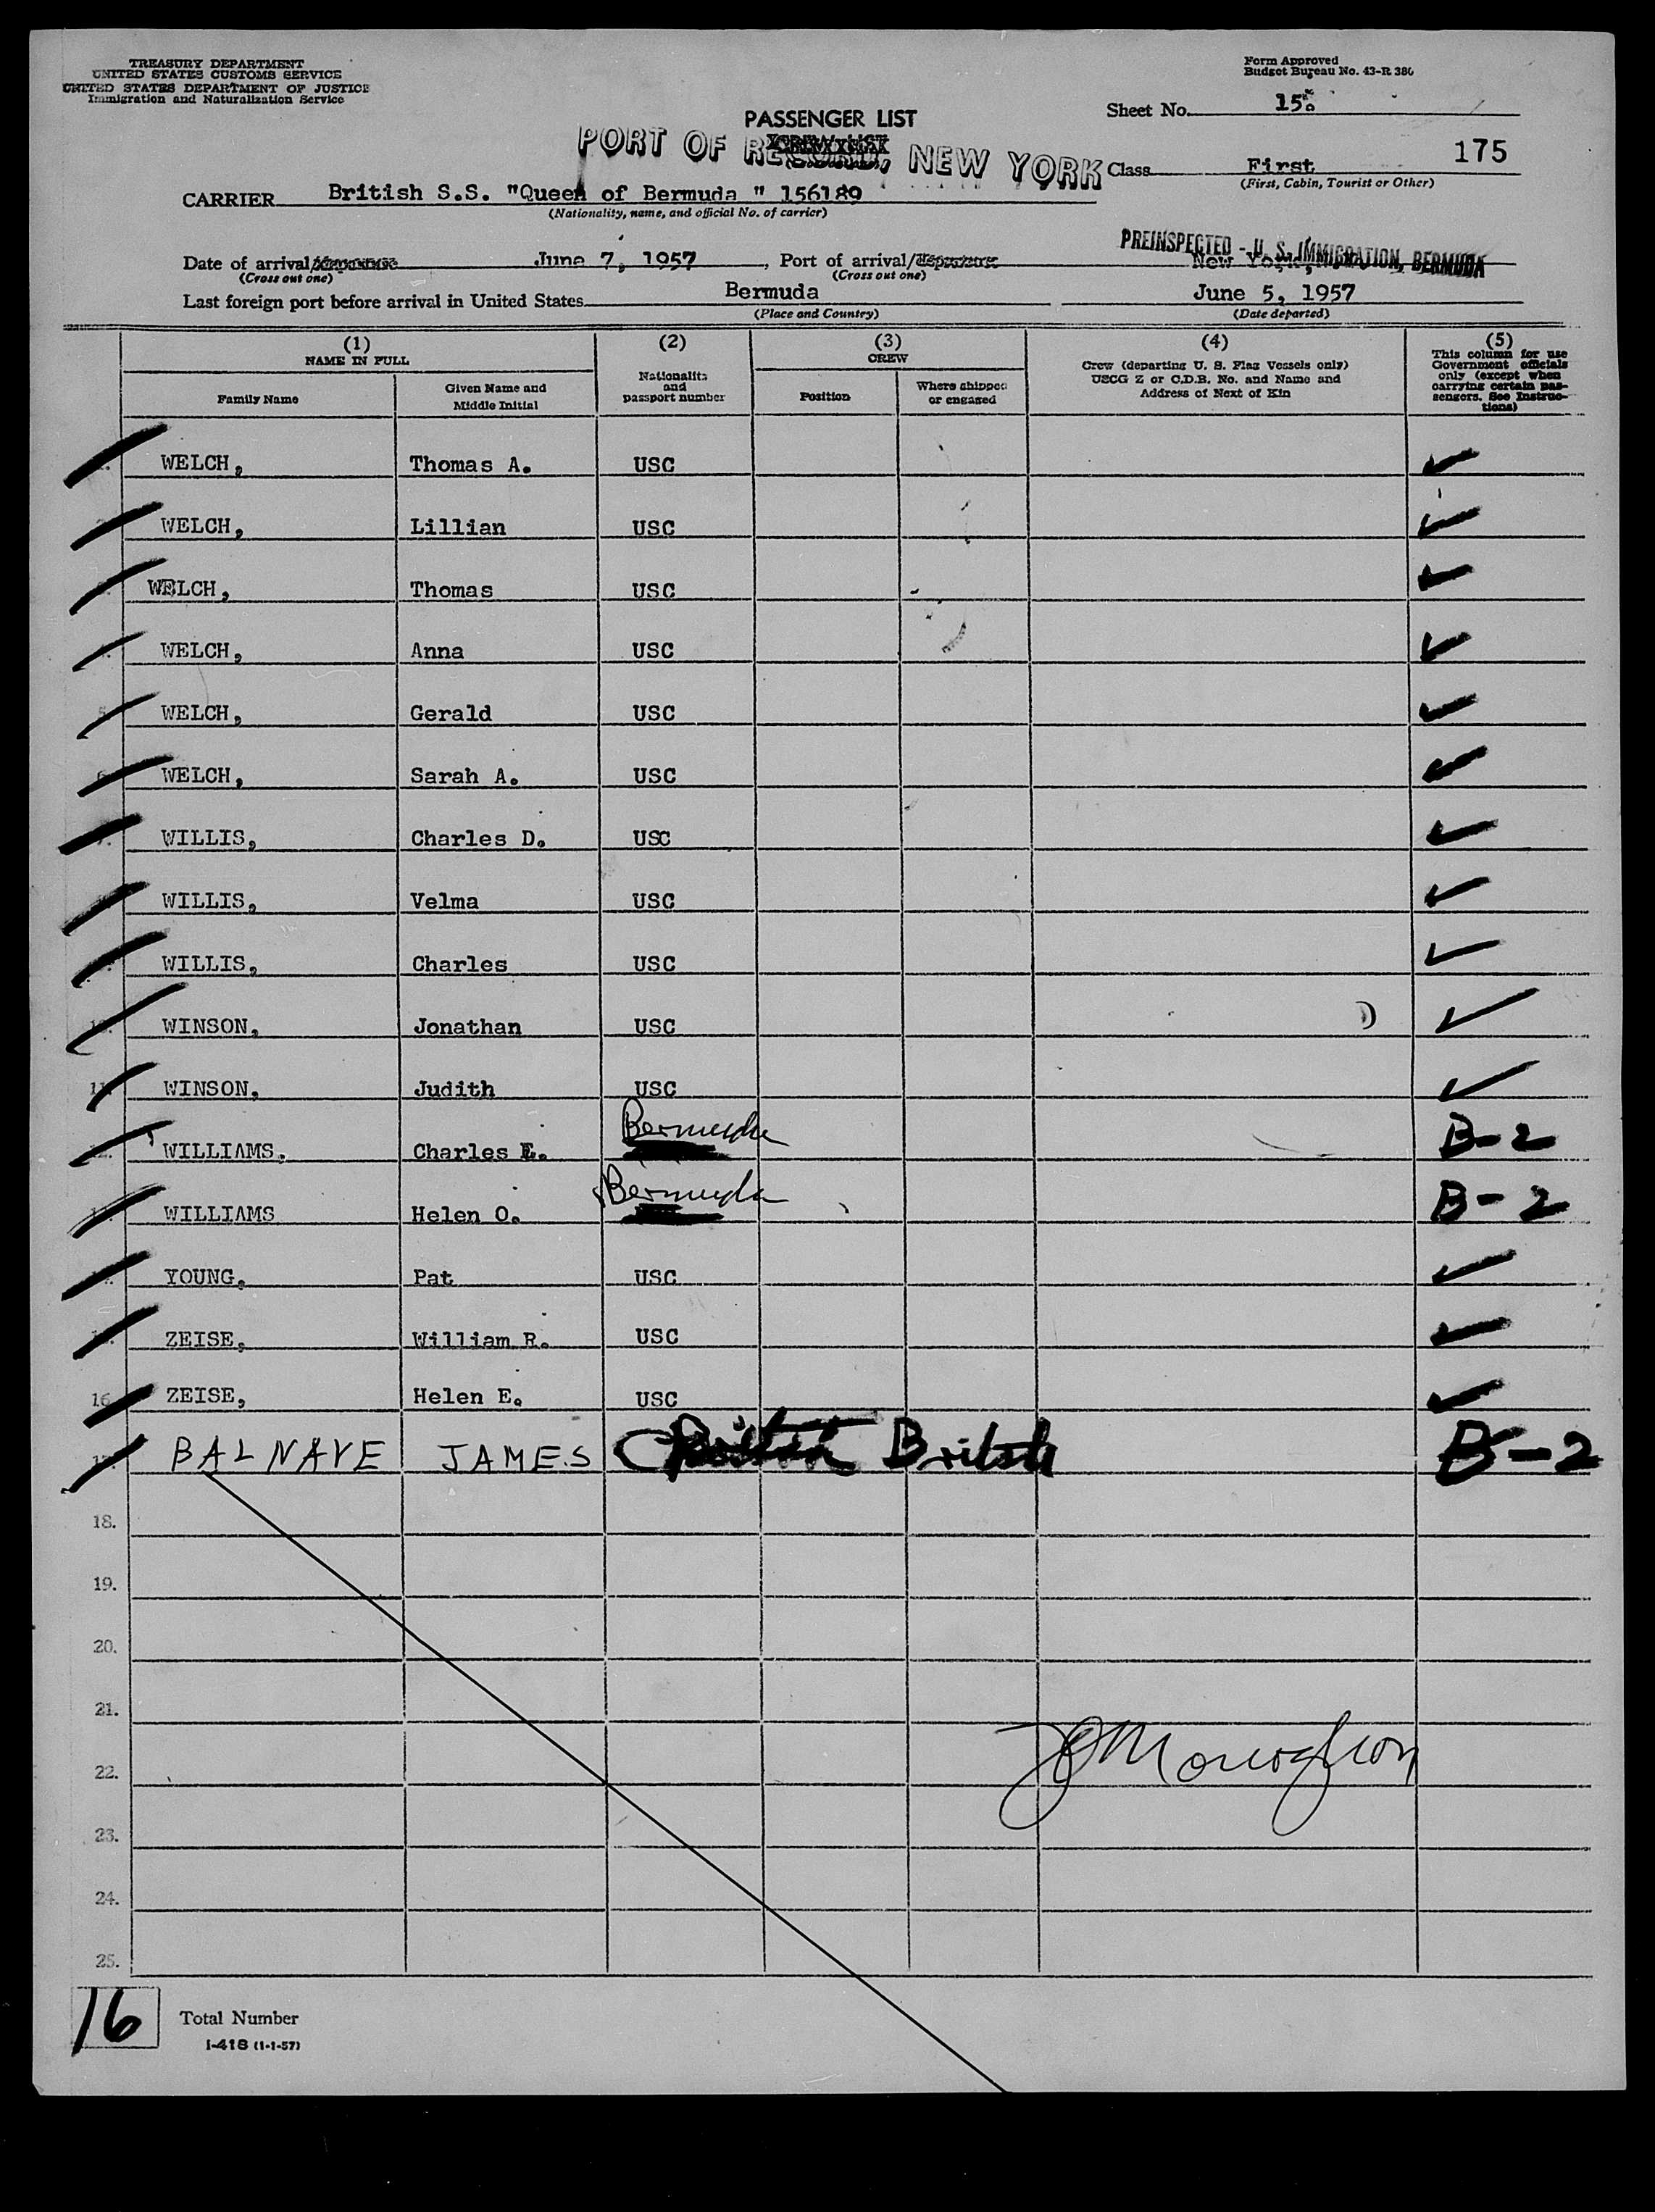 TREASURY DEPARTMENT
UNITED STATES CUSTOMS SERVICE
UNITED STATES DEPARTMENT OF JUSTICE
Immigration and Naturalization Service
Form Approved
Budget Bureau No. 43-R 386
Sheet No. 15.
PASSENGER LIST
PORT OF RECORD, NEW YORK
175
Class First
(First, Cabin, Tourist or Other)
CARRIER British S.S. "Queen of Bermuda " 156189
(Nationality, name, and official No. of carrier)
PREINSPECTED - U. S. IMMIGRATION, BERMUDA
Date of arrival/departure June 7, 1957, Port of arrival/departure New York,
(Cross out one) (Cross out one)
Last foreign port before arrival in United States Bermuda June 5, 1957
(Place and Country) (Date departed)
(1) (2) (3) (4) (5)
NAME IN FULL
Family Name
Given Name and Middle Initial
Nationality and passport number
CREW
Position
Where shipped or engaged
Crew (departing U. S. Flag Vessels only)
USCG Z or C.D.B. No. and Name and
Address of Next of Kin
This column for use
Government officials
only (except when
carrying certain pas-
sengers. See Instruc-
tions)
WELCH, Thomas A. USC
WELCH, Lillian USC
WELCH, Thomas USC
WELCH, Anna USC
WELCH, Gerald USC
WELCH, Sarah A. USC
WILLIS, Charles D. USC
WILLIS, Velma USC
WILLIS, Charles USC
WINSON, Jonathan USC
11. WINSON, Judith USC
WILLIAMS, Charles E. Bermuda B-2
WILLIAMS Helen O. Bermuda B-2
YOUNG, Pat USC
ZEISE, William R. USC
16. ZEISE, Helen E. USC
BALNAVE JAMES British B-2
18.
19.
20.
21.
22.
23.
24.
25.
16 Total Number
I-418 (1-1-57)